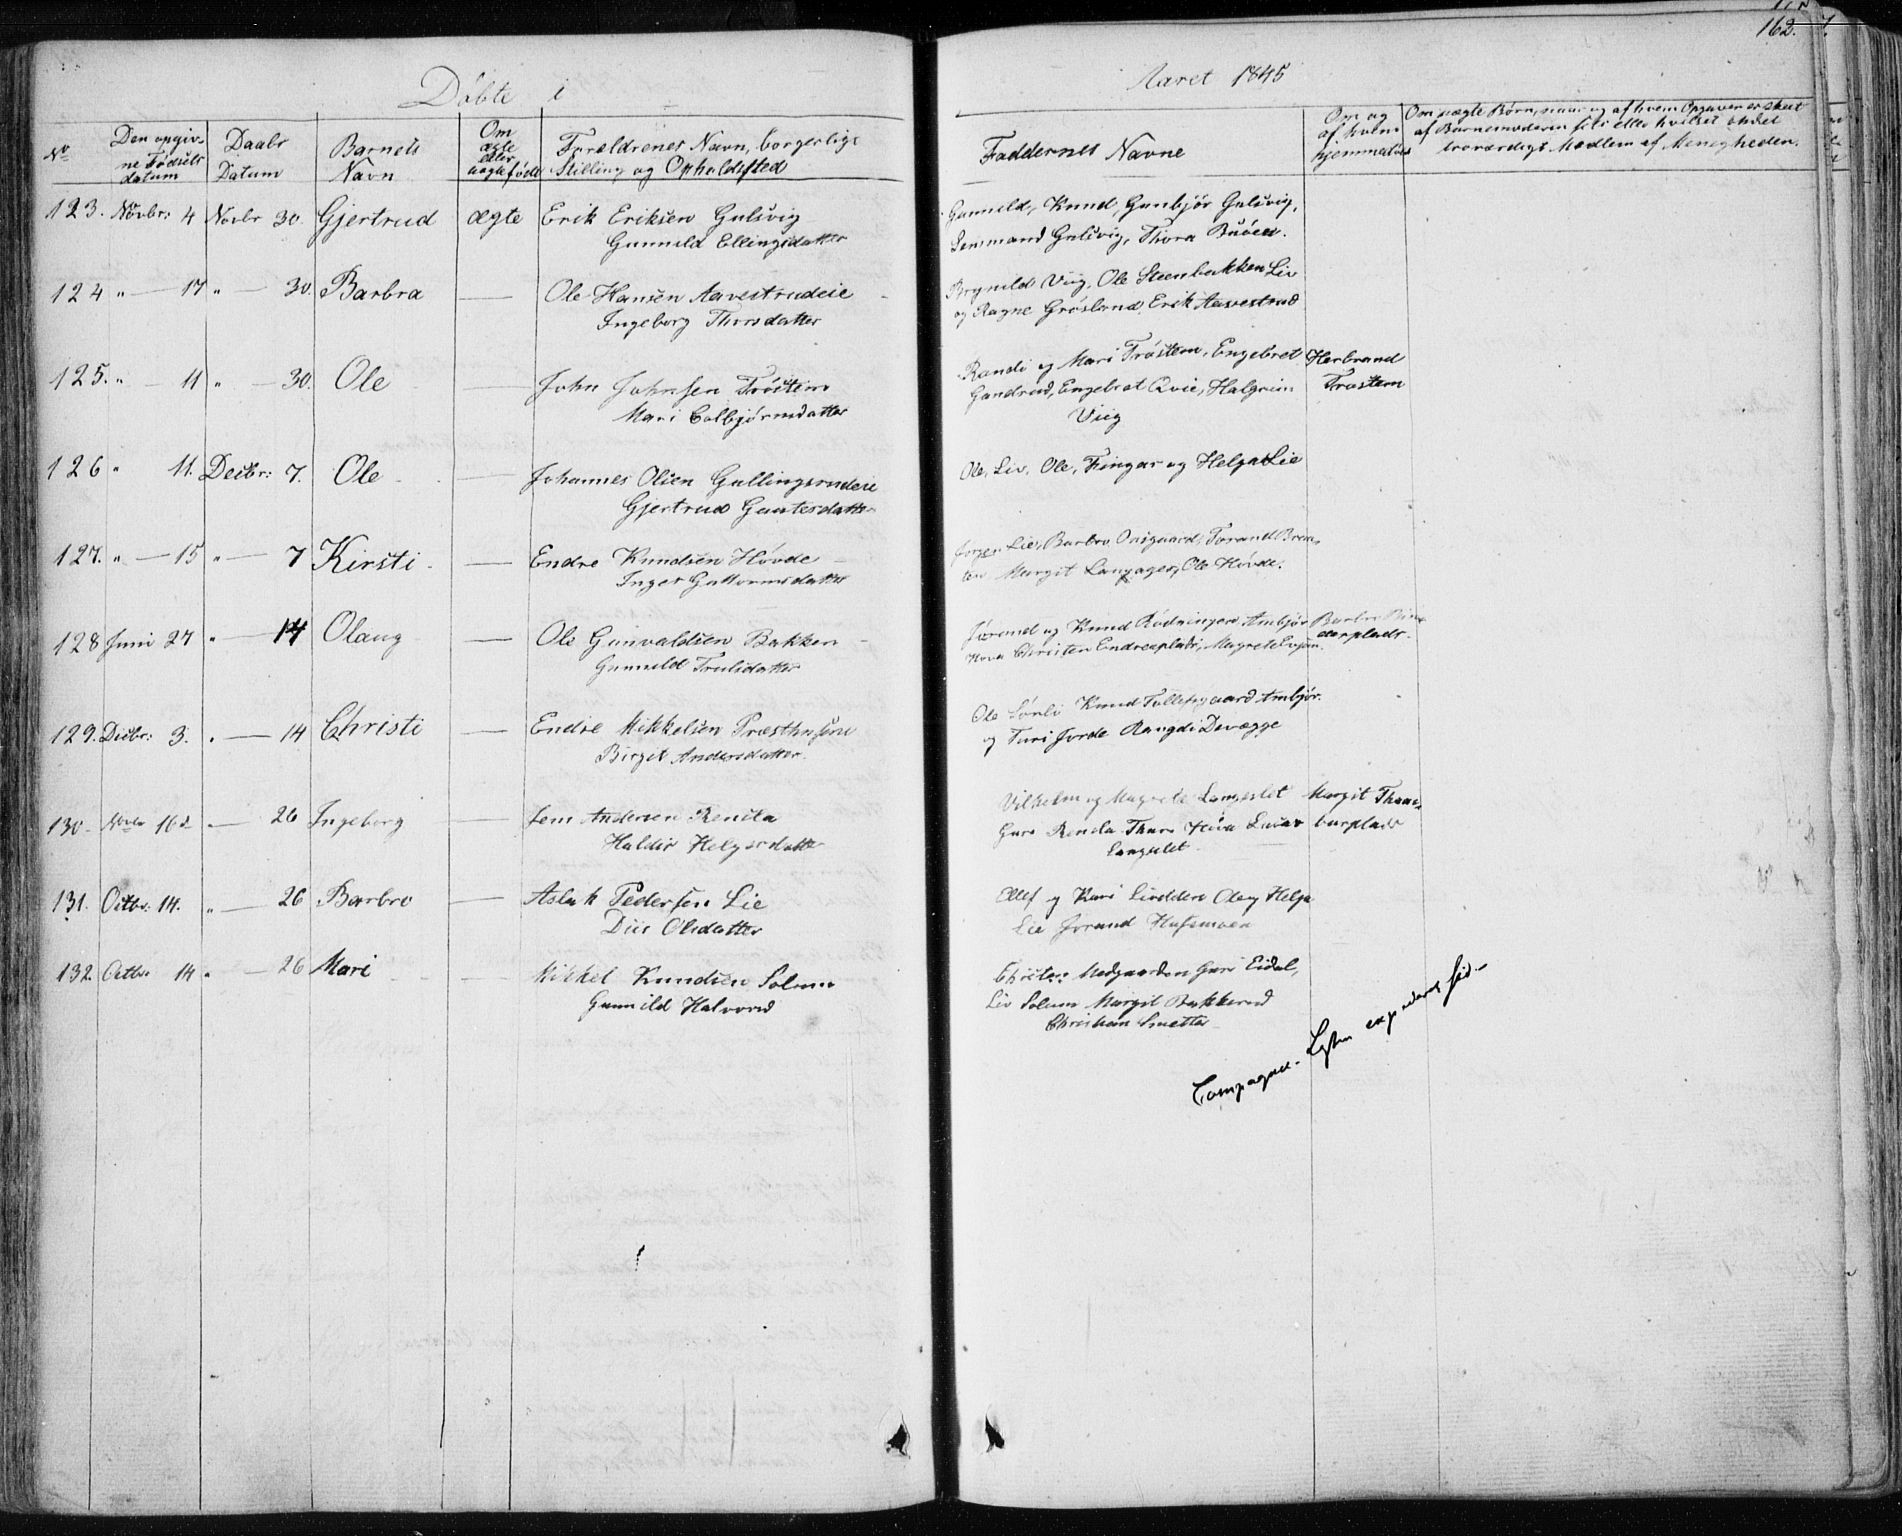 162.
Døbte i
Aaret 1845
No
Den opgiv-
ne Fødsels
datum
Daabs
Datum
Barnets
Navn
Om
ægte
eller
uægte født
Forældrenes Navn, borgerlige
Stilling og Opholdssted
Faddernes Navne
Om og
af hvem
hjemmedøbt
Om uægte Børn, naar og af hvem Opgaven er skeet
af Barnemoderen selv eller hvilket andet
troværdigt Medlem af Menigheden.
123. Novbr: 4 Novbr 30. Gjertrud ægte Erik Eriksen Gulsvig
Gunnild Ellingsdatter
Gunnild, Knud, Gunbjør Gulsvig,
Gulsvig, Thora
124 " — 17 " — 30. Barbra — Ole Hansen Aavestrudeie
Ingeborg Thorsdatter
Brynild Viig, Ole Steenbakken Liv
og Ragne Grøsland, Erik Aavestrud
125. " — 11 " — 30. Ole — John Johnsen Trøstem
Mari Colbjørnsdatter
Randi og Mari Trøstem, Engebret
Gandrud, Engebret Qvie, Halgrim
Viig
Herbrand
Trøstem
126 " 11. Decbr: 7. Ole — Johannes Olsen Gullingsrudeie
Gjertrud Guutersdatter
Ole, Liv, Ole, Fingar og Helga Lie
127. " — 15 " — 7 Kirsti — Endre Knudsen Hövde
Inger Guttormsdatter
Jørgen Lie, Barbro Torand Bra-
ten Margit Langager, Ole Hövde.
128 Juni 27 " — 14 Olaug — Ole Gunvaldsen Bakken
Gunnild Trulsdatter
og Knud Rodningen Ambjør
Christen Endreplads, Magrete
Barbro
derplads.
129. Decbr: 3. " — 14 Christi — Endre Mikkelsen
Birgit Andersdatter
Ole Knud Tollefsgaard Ambjør
og Turi Jorde Rangdi Devægge
130 Novbr 16 " — 26 Ingeborg — Jens Andersen Renda
Haldis Helgesdatter
Vilhelm og Magrete Langeslet
Guro Renda Thuro
Langeslet
Margit Tham-
burplads
131. Octbr: 14. " — 26 Barbro — Aslak Pedersen Lie
Olsdatter
Ellef og Kari Oleg Helge
Lie Jorand
132. Octbr. 14 " — 26 Mari — Mikkel Knudsen Solum
Gunnild Halvorsd
Medgaarden Guri Eidal,
Liv Solum Margit Bakkerud
Christian Smetta
Compagnie-Lysten